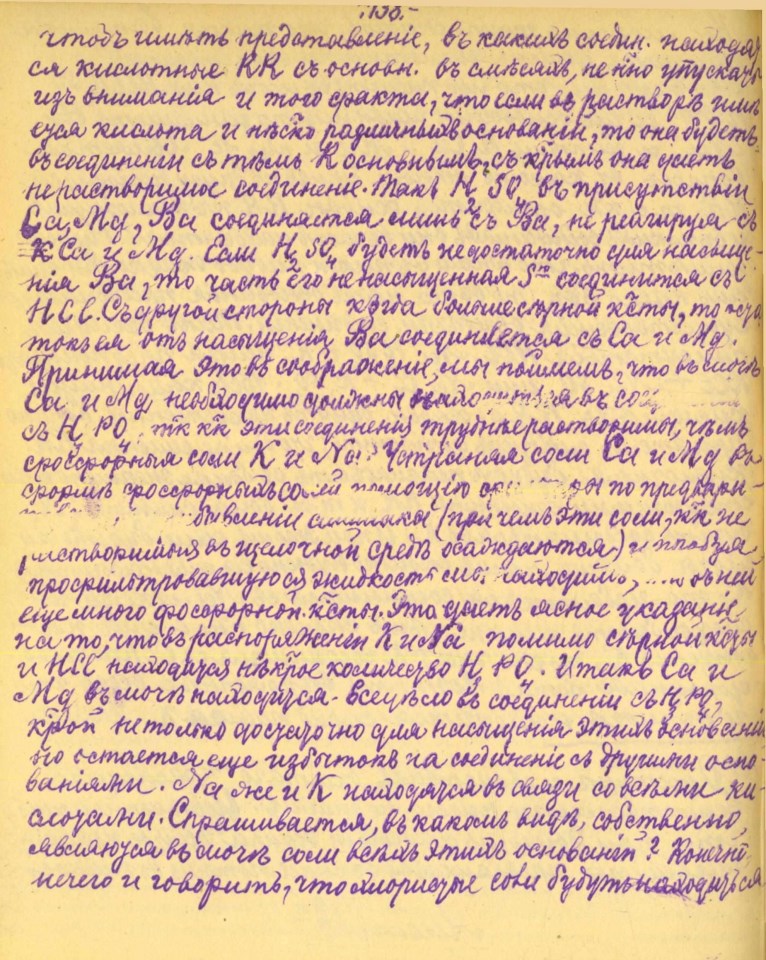 чтобъ имѣть представленіе, въ какихъ соедин. находят
ся кислотные КК съ основн. въ смѣсяхъ, не нжо упускать
изъ вниманія и того факта, что если въ растворѣ имѣ
ется кислота и нѣско различныхъ основаній, то она будетъ
въ соединеніи съ тѣмъ К основнымъ, съ кѣрымъ она даетъ
нерастворимое соединеніе. Такъ H2SO4 въ присутствіи
Ca, Mg, Ba соединяется лишь съ Ba, не реагируя съ
Ca и Mg. Если H2SO4 будетъ недостаточно для насыще-
нія Ba, то часть его ненасыщенная соединится съ
HCl. Съ другой стороны когда больше сѣрной кты, то оста
токъ ея отъ насыщенія Ba соединяется съ Ca и Mg.
Принимая это въ соображеніе, мы поймемъ, что въ мочѣ
Ca и Mg необходимо должны находиться въ соед
съ H3PO4, тк кк эти соединенія труднѣе растворимы, чѣмъ
фосфорныя соли К и Na. Устраняя соли Ca и Mg въ
формѣ фосфорныхъ солей помощію по предвари-
бавленіи амміака (при чемъ эти соли, кк не
растворимыя въ щелочной средѣ осаждаются) и
профильтровавшуюся жидкость мы находимъ, въ ней
еще много фосфорной кты. Это даетъ ясное указаніе
на то, что въ распоряженіи К и Na помимо сѣрной кты
и HCl находится нѣкрое количество H3PO4. Итакъ Ca и
Mg въ мочѣ находится всецѣло въ соединеніи съ H3PO4,
кѣрой не только достаточно для насыщенія этихъ основаній
но остается еще избытокъ на соединеніе съ другими осно-
ваніями. Na же и К находятся въ связи со всѣми ки-
слотами. Спрашивается, въ какомъ видѣ, собственно,
являются въ мочѣ соли всѣхъ этихъ основаній? Конечно
нечего и говорить, что хлористые соли будутъ находиться